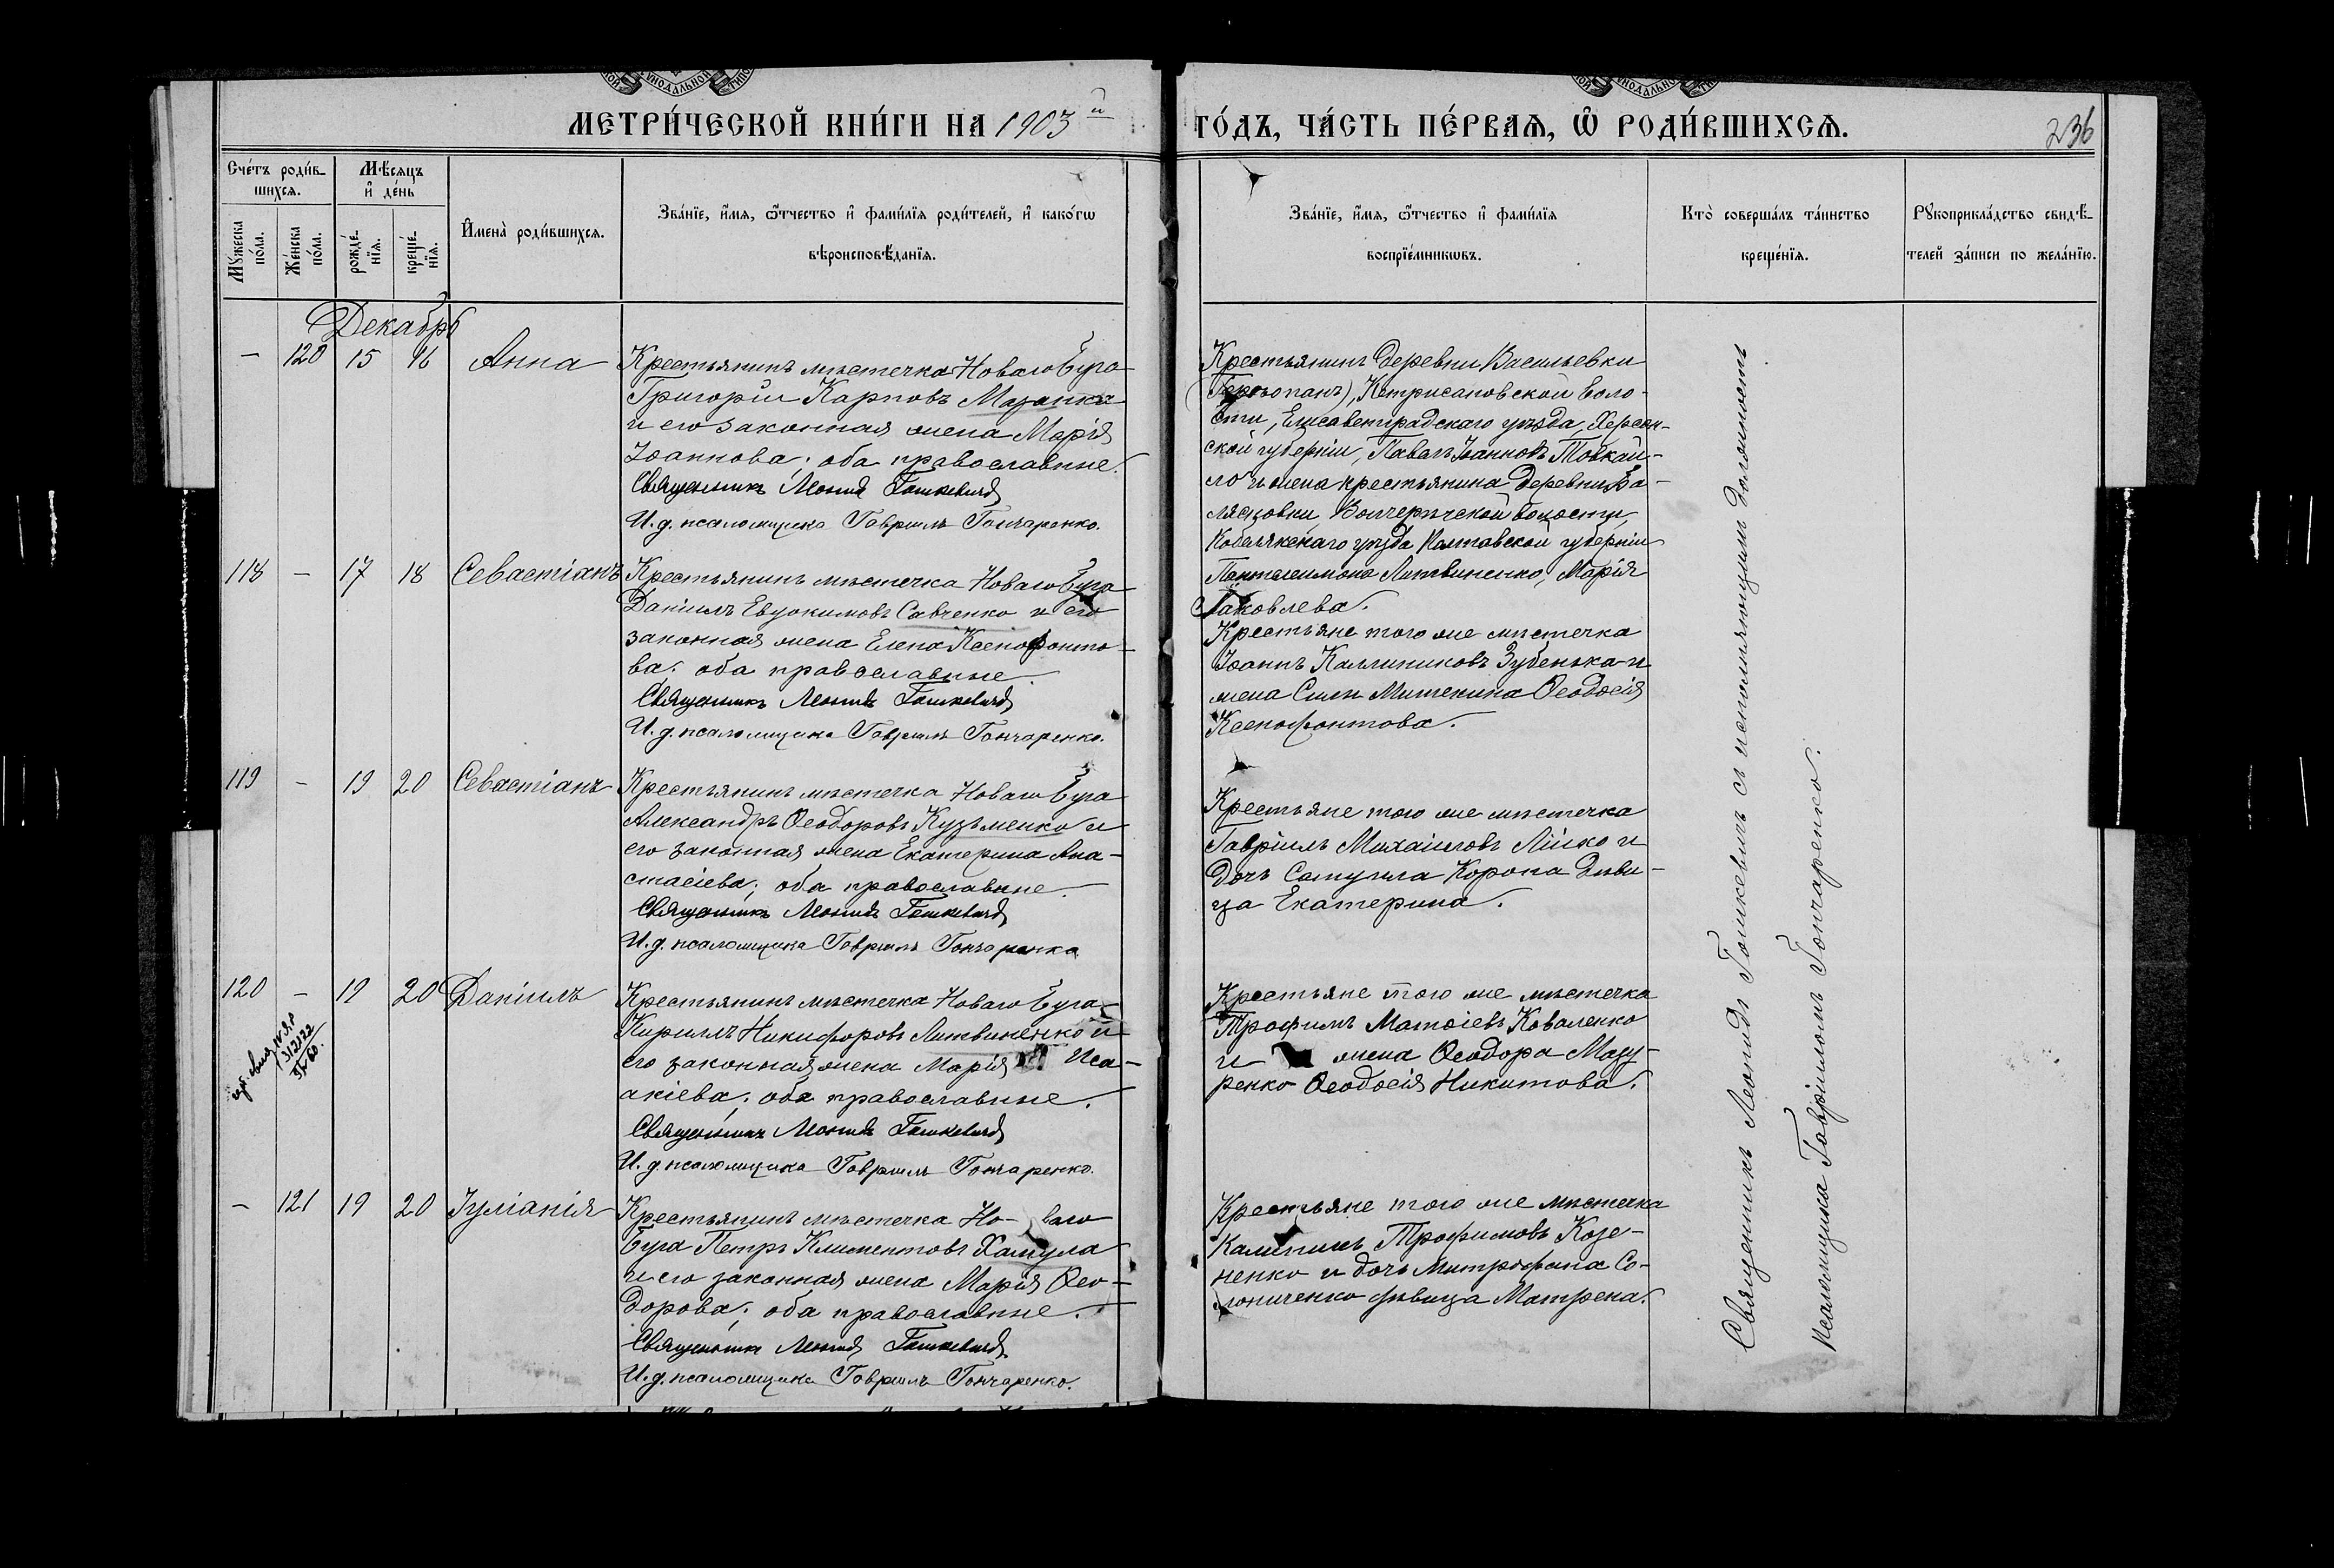 МЕТРИ́ЧЕСКОЙ КНИ́ГИ НА 1903й
ГО́ДЪ, ЧА́СТЬ ПЕ́РВАЯ, Ѡ҆ РОДИ́ВШИХСЯ.
236
Сче́тъ роди́в-
шихся.
Мѣ́сяцъ
и҆ де́нь
Мꙋ́жеска
по́ла.
Же́нска
по́ла.
рожде́-
нїя.
креще́-
нїя.
И҆мена̀ роди́вшихся.
Зва́нїе, и҆́мя, ѻ҆́тчество и҆ фамѝлїя роди́телей, и҆ како́гѡ
вѣроисповѣ́данїя.
Зва́нїе, и҆́мя, ѻ҆́тчество и҆ фами́лїя
воспрїе́мникѡвъ.
Кто̀ соверша́лъ та́инство
креще́нїя.
Рꙋкоприкла́дство свидѣ́-
телей за́писи по жела́нїю.
Декабрь
— 120 15 16 Анна
Крестьянинъ мѣстечка Новаго Буга
Григорій Карповъ Мазанка
и его законная жена Марія
Іоаннова; оба православные.
Священникъ Леонид Гошкевичъ
И. д. псаломщика Гавриилъ Гончаренко.
Крестьянинъ деревни Васильевки
Кетрисановской воло-
сти, Елисаветградскаго уѣзда, Херсон-
ской губерніи, Павелъ Іоанновъ Товкай-
ло и жена крестьянина деревни Ба-
лясовки, волости,
Кобелякскаго уѣзда Полтавской губерніи
Пантелеимона Литвиненко, Марія
Іаковлева.
118 — 17 18 Севастіанъ
Крестьянинъ мѣстечка Новаго Буга
Даніилъ Евдокимовъ Савченко и его
законная жена Елена Ксенофонто-
ва; оба православные.
Священникъ Леонидъ Гошкевичъ
И. д. псаломщика Гавриилъ Гончаренко.
Крестьяне того же мѣстечка
Іоаннъ Каллиниковъ Зубенька и
жена Силы Митекина Ѳеодосія
Ксенофонтова.
119 — 19 20 Севастіанъ
Крестьянинъ мѣстечка Новаго Буга
Александръ Ѳеодоровъ Кузьменко и
его законная жена Екатерина Ана-
стасіева; оба православные.
Священникъ Леонидъ Гошкевичъ
И. д. псаломщика Гавриилъ Гончаренко
Крестьяне того же мѣстечка
Гавріилъ Михаиловъ Лійко и
дочь Самуила Корона дѣви-
ца Екатерина.
120 — 19 20 Даніилъ
Крестьянинъ мѣстечка Новаго Буга
Кириллъ Никифоровъ Литвиненко и
его законная жена Марія Иса-
акіева; оба православные.
Священникъ Леонидъ Гошкевичъ
И. д. псаломщика Гавриилъ Гончаренко.
Крестьяне того же мѣстечка
Трофимъ Матѳіевъ Коваленко
и жена Ѳеодора Мазу-
ренко Ѳеодосія Никитова.
— 121 19 20 Іуліанія
Крестьянинъ мѣстечка Но- ваго
Буга Петръ Климентовъ Хамула
и его законная жена Марія Ѳео-
дорова; оба православные.
Священникъ Леонид Гошкевичъ
И. д. псаломщика Гавриилъ Гончаренко.
Крестьяне того же мѣстечка
Калиникъ Трофимовъ Козе-
ненко и дочь Митрофана Со-
лониченко дѣвица Матрена.
Священникъ Леонидъ Гошкевичъ съ исполняющимъ должность
псаломщика Гавріиломъ Гончаренко.